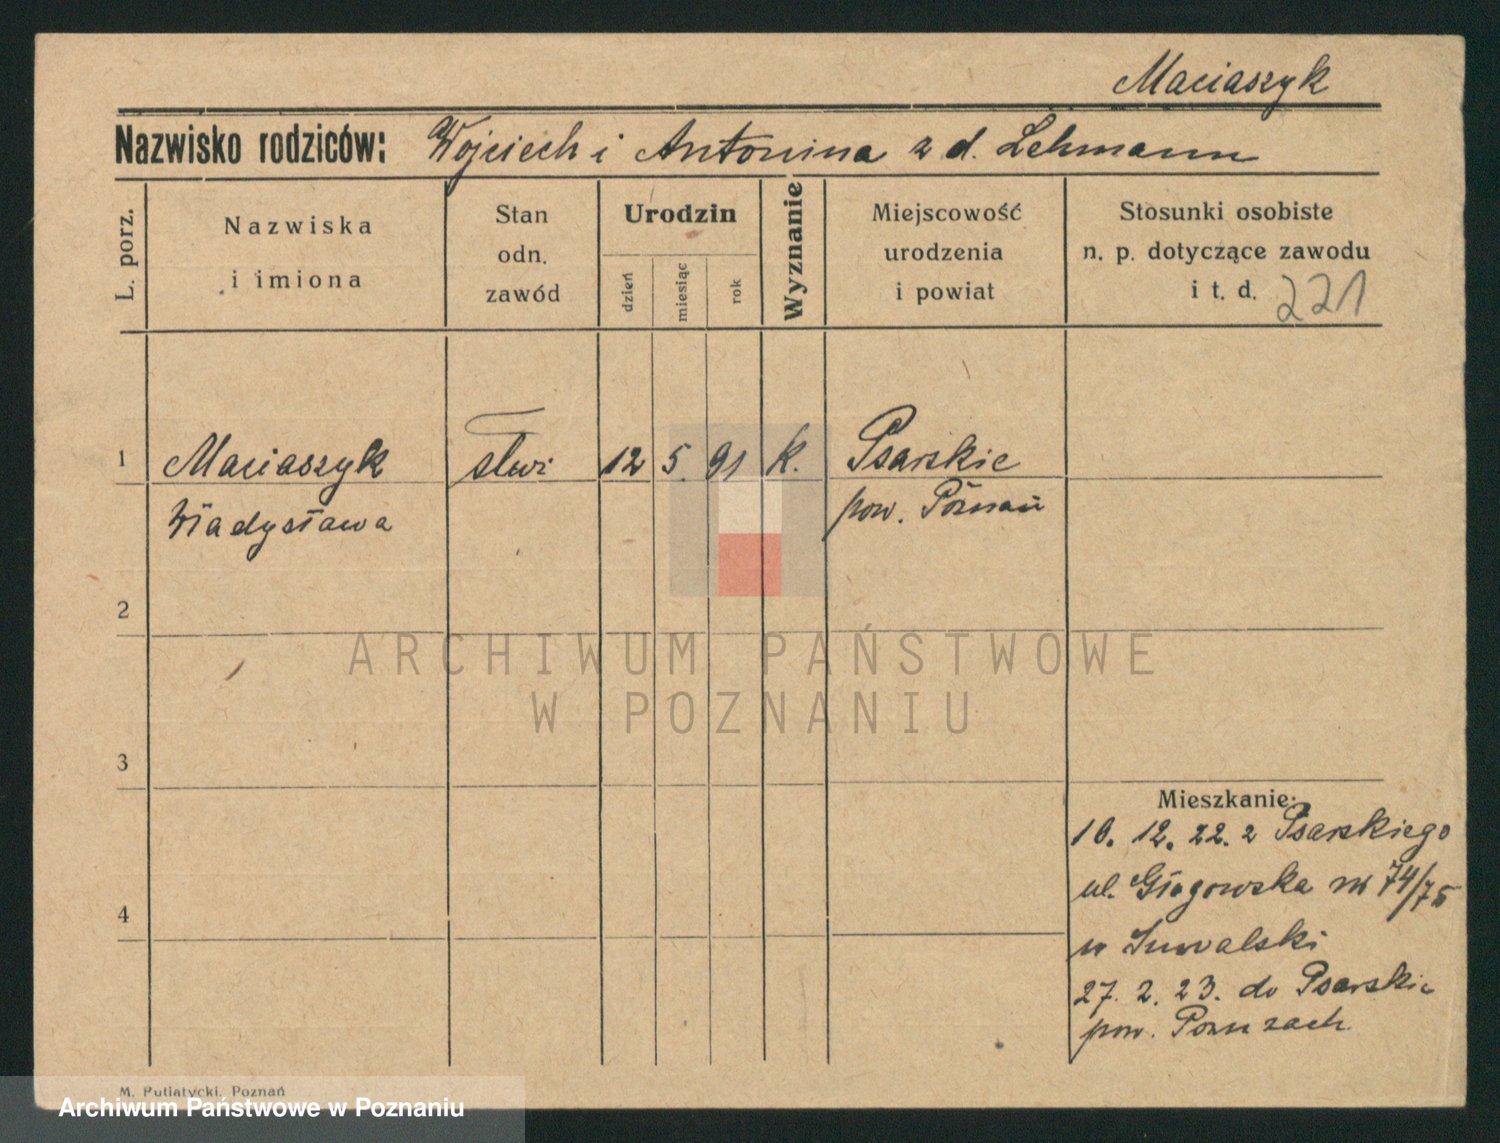 Maciaszyk
Nazwisko rodziców: Wojciech i Antonina z d. Lehmann
L. porz.
Nazwiska
i imiona
Stan
odn.
zawód
Urodzin
dzień
miesiąc
rok
Wyznanie
Miejscowość
urodzenia
i powiat
Stosunki osobiste
n. p. dotyczące zawodu
i t. d. 221
1 Maciaszyk służ. 12 5. 91 k. Psarskie
Władysława pow. Poznań
2
ARCHIWUM PAŃSTWOWE
W POZNANIU
3
Mieszkanie:
10. 12. 22. z Psarskiego
ul. Głogowska nr 74/75
u Suwalski
4
27. 2. 23. do Psarskie
pow. Pozn zach.
M. Putiatycki, Poznań
Archiwum Państwowe w Poznaniu